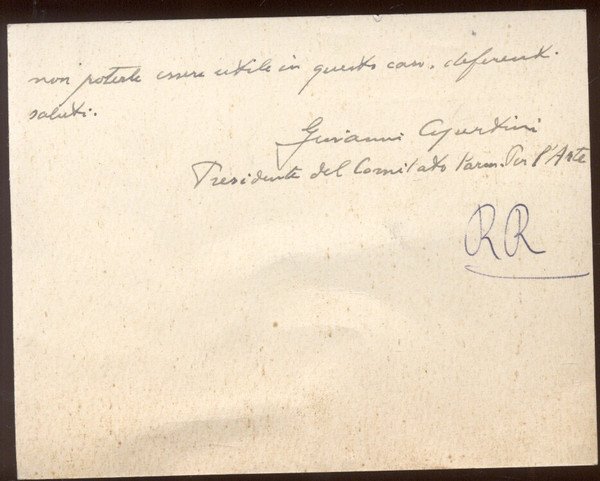 non poterle essere utile in questo caso. deferenti
saluti.
Giovanni
Presidente del Comitato Parm. Per l'Arte
RR